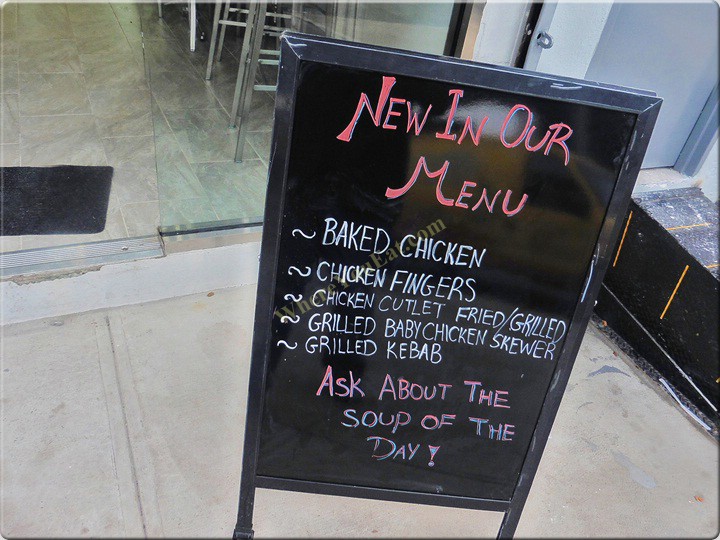 New In Our
Menu
~ Baked Chicken
~ Chicken Fingers
~ Chicken Cutlet Fried/Grilled
~ Grilled Baby Chicken Skewer
~ Grilled Kebab
Ask About The
Soup of The
Day!
WhereYouEat.com